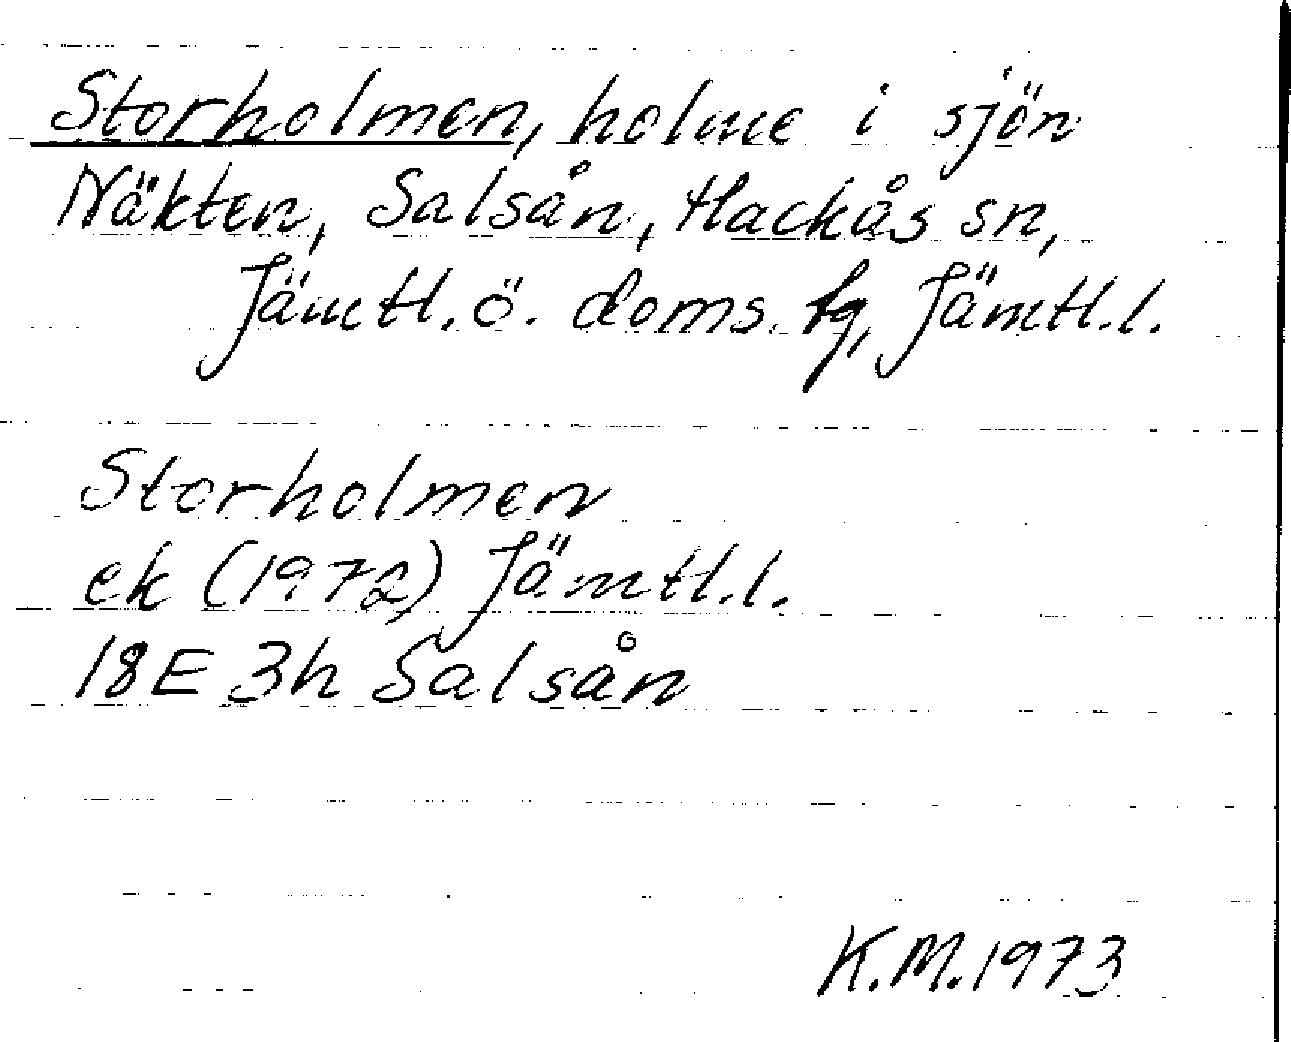 Storholmen, holme i sjön
Näkten, Salsån, Hackås sn,
Jämtl. ö. doms. fg, Jämtl. l.
Storholmen
ek (1972) Jämtl. l.
18E 3h Salsån
K.M. 1973